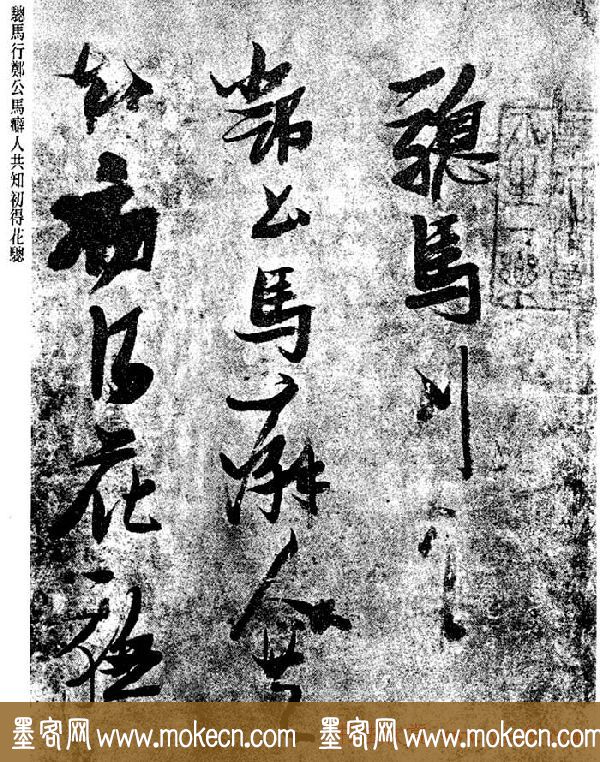 驄馬行
鄭公馬癖人共
知初得花驄
驄馬行鄭公馬癖人共知初得花驄
墨客网 www.mokecn.com 墨客网 www.mokecn.com